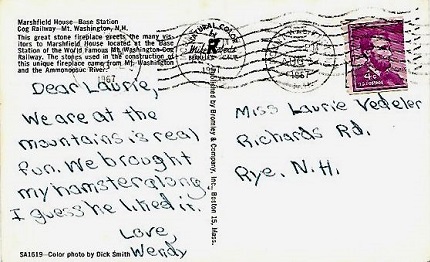 Marshfield House - Base Station
Cog Railway - Mt. Washington, N.H.
This great stone fireplace greets the many vis-
itors to Marshfield House located at the Base
Station of the World Famous Mt. Washington
Cog Railway. The stones used in the construction of
this unique fireplace came from Mt. Washington
and the Ammonoosuc River.
1967
Dear Laurie,
We are at the
mountains is real
fun. We brought
my hamster along.
I guess he liked it.
Love,
Wendy
SA1619-Color photo by Dick Smith
NATURAL COLOR
Published by Bromley & Company, Inc., Boston 15, Mass.
1967
4c
U.S. POSTAGE
Miss Laurie Vedeler
Richards Rd.
Rye, N.H.